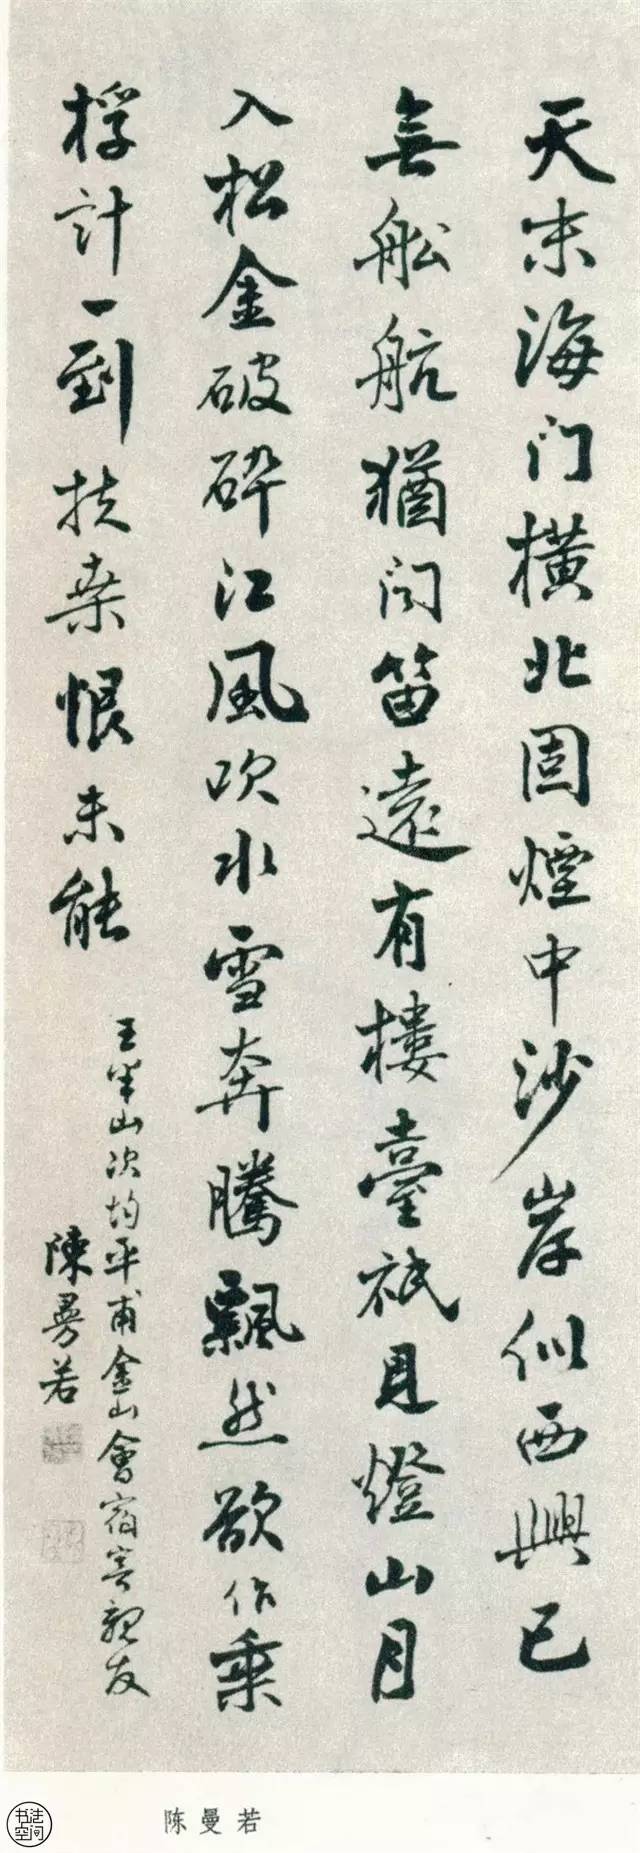 天末海门橫北固煙中沙岸似西興已
無船舷航猶闻笛遠有樓臺祇見燈山月
入松金破碎江風吹水雪奔騰飄然欲作乘
桴計一到扶桑恨未能
王半山次均平甫金山會宿寄親友
陳曼若
书法空间
陈曼若